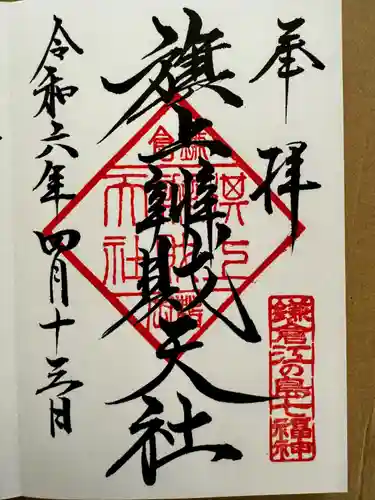 奉拝
旗上辨財天社
令和六年四月十三日
鎌倉江の島七福神